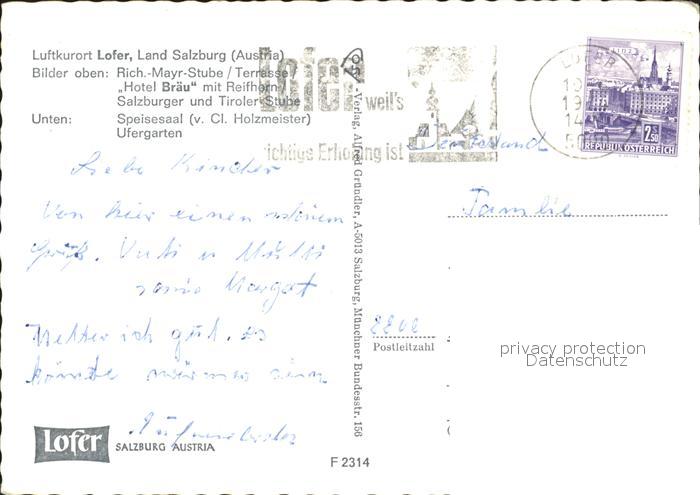 Luftkurort Lofer, Land Salzburg (Austria)
Bilder oben: Rich.-Mayr-Stube / Terrasse /
„Hotel Bräu“ mit Reifhorn /
Salzburger und Tiroler Stube
Unten: Speisesaal (v. Cl. Holzmeister)
Ufergarten
Lofer
weil's
richtige Erholung ist
LOFER
LINZ
2.50
REPUBLIK ÖSTERREICH
Deutschland
Familie
Liebe Kinder
Von hier einen schönen
Gruß. Vati u Mutti
sowie Margot.
Wetter ist gut. es
könnte wärmer sein
-Verlag, Alfred Gründler, A-5013 Salzburg, Münchner Bundesstr. 156
Postleitzahl
privacy protection
Datenschutz
Lofer
SALZBURG AUSTRIA
F 2314